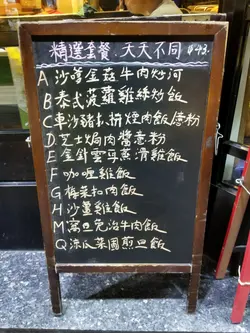 精選套餐.天天不同 $43.
A 沙嗲金菇牛肉炒河
B 泰式菠蘿雞絲炒飯
C 車沙豬扒拼燒肉飯/意粉
D 芝士焗肉醬意粉
E 金針雲耳蒸滑雞飯
F 咖喱雞飯
G 梅菜扣肉飯
H 沙薑雞飯
M 萬巴免治牛肉飯
Q 涼瓜菜圃煎旦飯